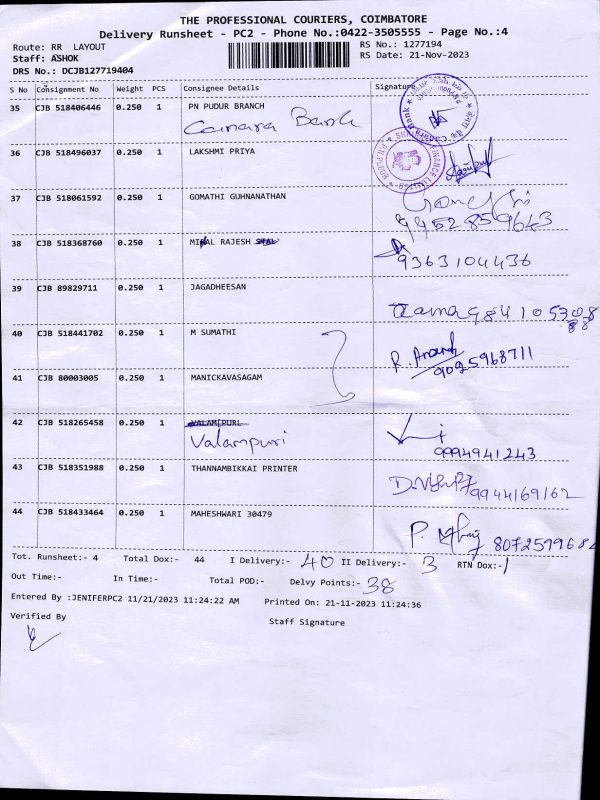 THE PROFESSIONAL COURIERS, COIMBATORE
Delivery Runsheet - PC2 - Phone No.:0422-3505555 - Page No.:4
Route: RR LAYOUT
RS No.: 1277194
Staff: ASHOK
RS Date: 21-Nov-2023
DRS No.: DCJB127719404
S No Consignment No Weight PCS Consignee Details Signature
35 CJB 518406446 0.250 1 PN PUDUR BRANCH
Canara Bank
36 CJB 518496037 0.250 1 LAKSHMI PRIYA
37 CJB 518061592 0.250 1 GOMATHI GUHNANATHAN
9952859643
38 CJB 518368760 0.250 1 RAJESH
9363104436
39 CJB 89829711 0.250 1 JAGADHEESAN
40 CJB 518441702 0.250 1 M SUMATHI
R. Anand
9025968711
41 CJB 80003005 0.250 1 MANICKAVASAGAM
42 CJB 518265458 0.250 1 VALAMIPURI
Valampuri
9994941243
43 CJB 518351988 0.250 1 THANNAMBIKKAI PRINTER
9944169162
44 CJB 518433464 0.250 1 MAHESHWARI 30479
Tot. Runsheet:- 4 Total Dox:- 44 I Delivery:- 40 II Delivery:- 3 RTN Dox:- 1
Out Time:- In Time:- Total POD:- Delvy Points:- 38
Entered By :JENIFERPC2 11/21/2023 11:24:22 AM Printed On: 21-11-2023 11:24:36
Verified By
Staff Signature